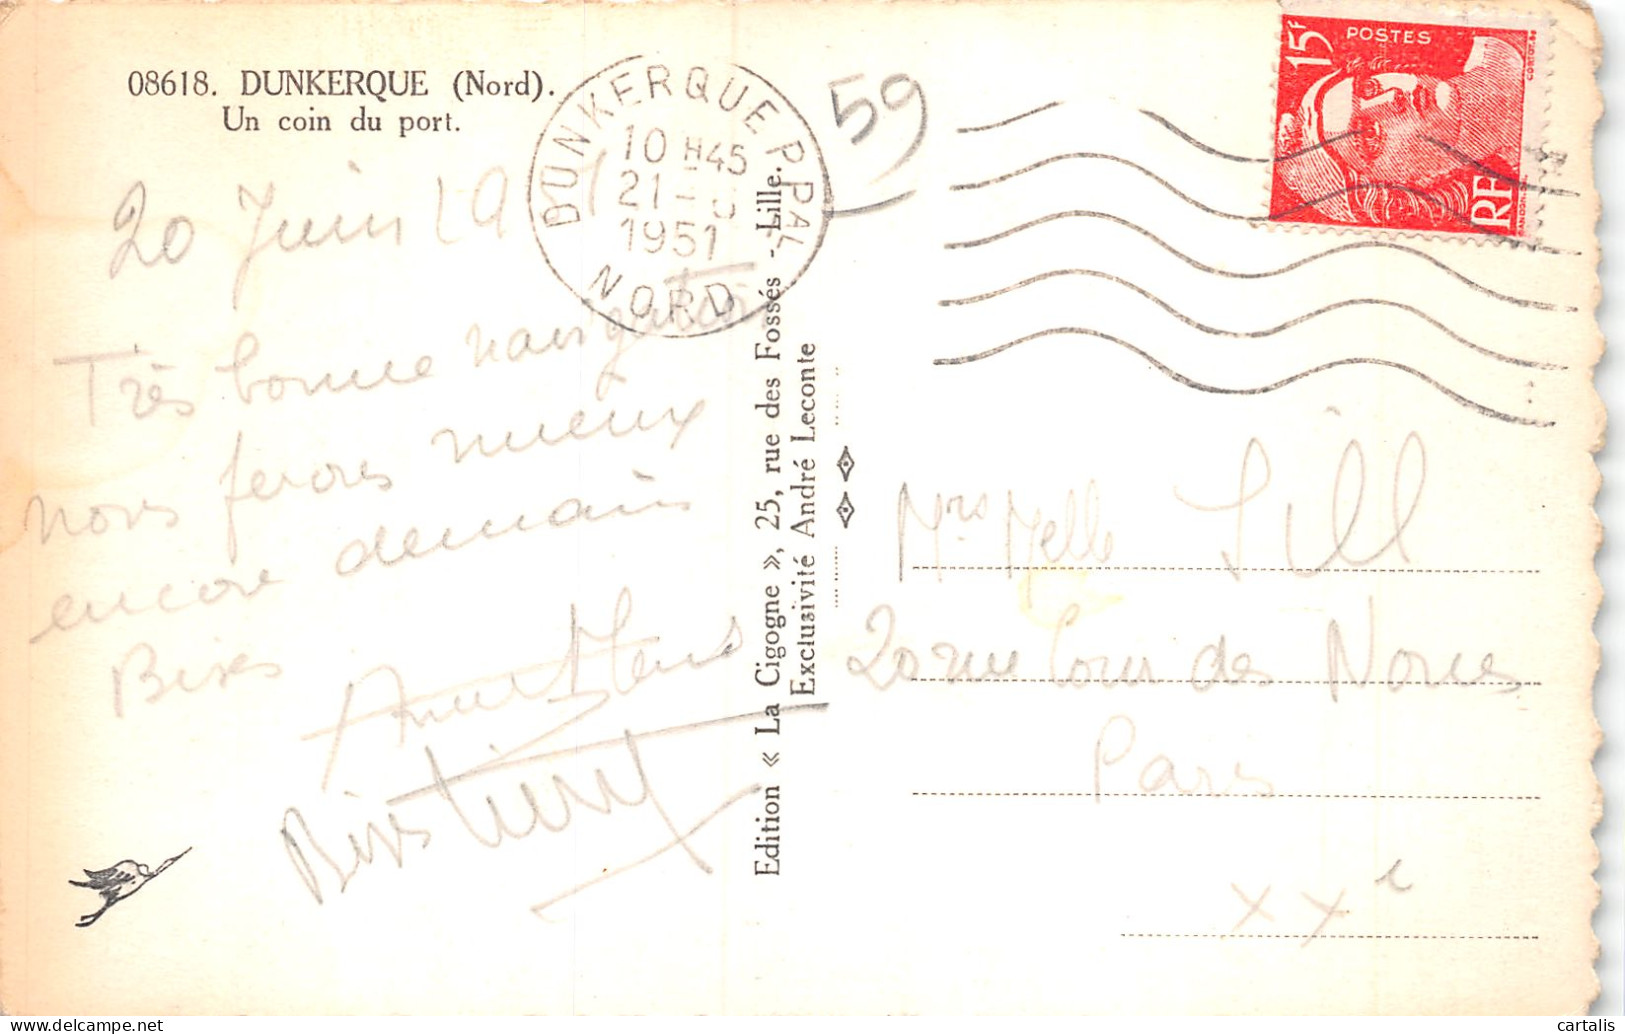 08618. DUNKERQUE (Nord).
Un coin du port.
20 Juin 1951
Très bonne navigation
nous ferons mieux
encore demain
Bises
Bises
DUNKERQUE PPAL
10 H45
21 - 6
1951
NORD
59
15F
POSTES
RF
Edition « La Cigogne », 25, rue des Fossés - Lille.
Exclusivité André Leconte
Mrs Melle Sill
20 rue Cour des Noues
Paris
XXe
cartalis